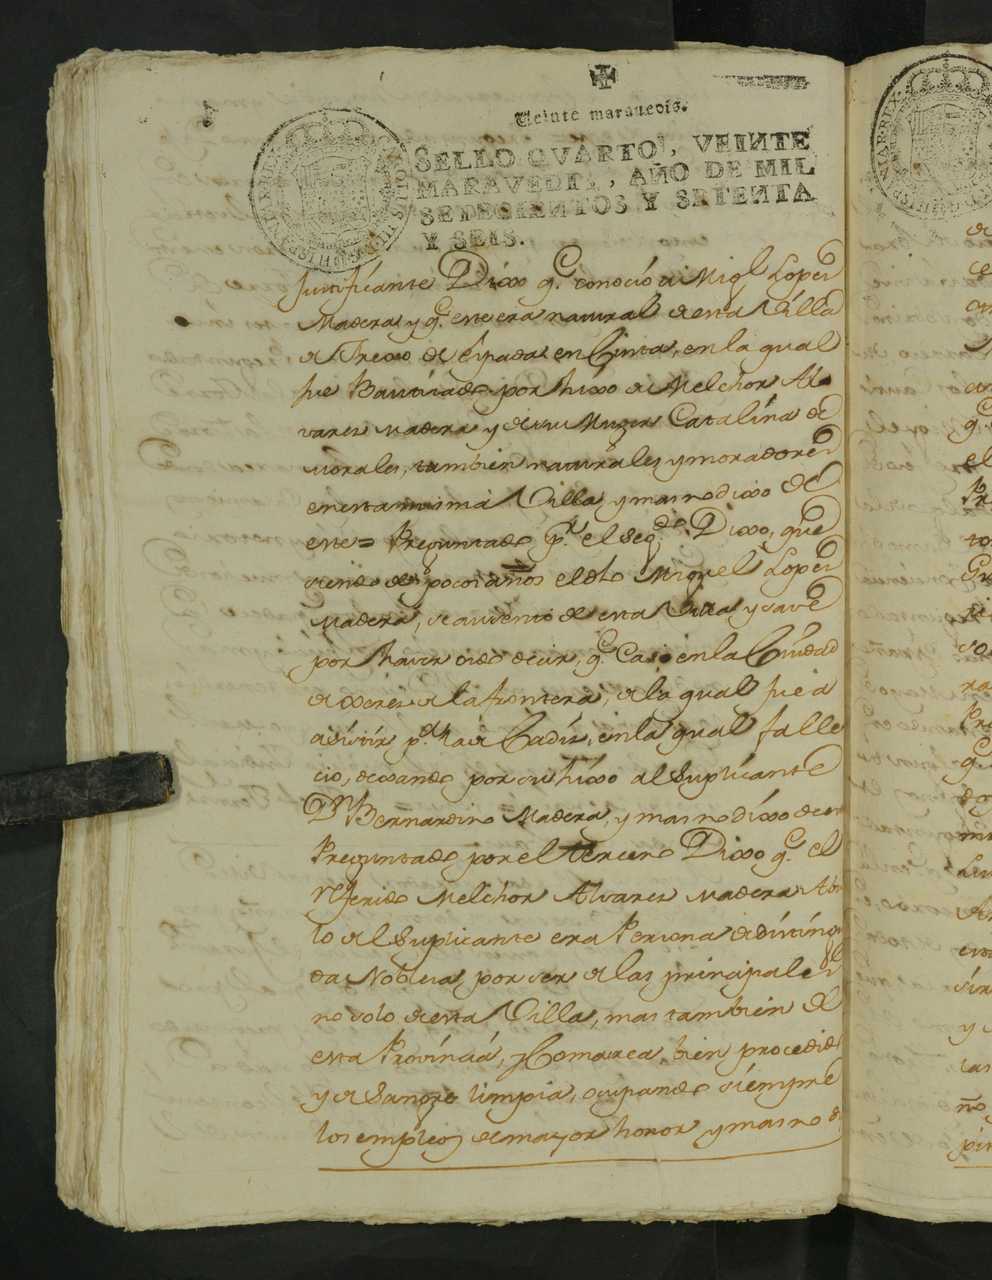 Veinte marauedis.
SELLO QVARTO, VEINTE
MARAVEDIS, AÑO DE MIL
SETECIENTOS Y SETENTA
Y SEIS.
Justificante Dixo q.e conoció a Mig.l Lopez
Madera, y q.e este era natural de esta Villa
de Frexo de Espada en Cinta, en la qual
fue Bautizado por hixo de Melchor Al
varez Madera y de su Muger Catalina de
Morales, tambien naturales y moradores
en esta misma Villa, y mas no dixo de
este = Preguntado p.r el seg.do Dixo, que
siendo de pocos años el dho Miguel Lopez
Madera, se ausentó de esta Villa, y save
por haver oido decir, q.e Casó en la Ciudad
de Xerez de la frontera, de la qual fue a
asistir p.a la de Cadiz, en la qual falle
cio, dexando por su hixo al Suplicante
D.n Bernardino Madera, y mas no dixo de este
Preguntado por el tercero Dixo q.e el
referido Melchor Alvarez Madera Abue
lo del Suplicante era Persona de distingui
da Nobleza, por ser de las principales
no solo de esta Villa, mas tambien de
esta Provincia, y Comarca, bien procedido
y de Sangre limpia, ocupando siempre
los empleos de mayor honor y mas no d